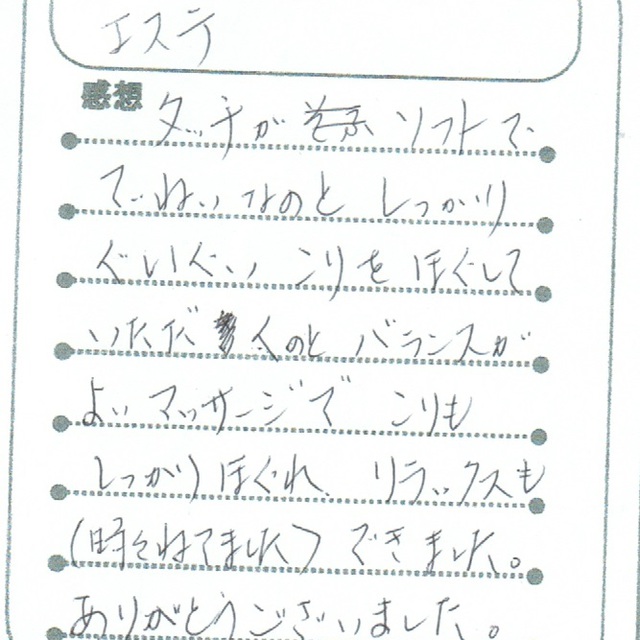 エステ
感想
タッチが ソフトで
ていねいなのと しっかり
ぐいぐい こりを ほぐして
いただくのと バランスが
よいマッサージで こりも
しっかりほぐれ、リラックスも
(時々ねてました)できました。
ありがとうございました。